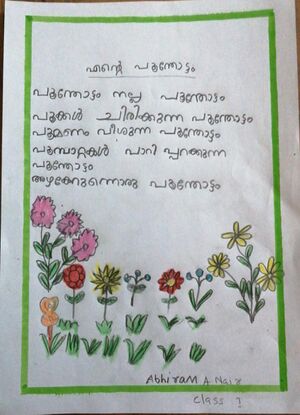 എന്റെ പൂന്തോട്ടം
പൂന്തോട്ടം നല്ല പൂന്തോട്ടം
പൂക്കൾ ചിരിക്കുന്ന പൂന്തോട്ടം
പൂമണം വീശുന്ന പൂന്തോട്ടം
പൂമ്പാറ്റകൾ പാറി പ്പറക്കുന്ന
പൂന്തോട്ടം
അഴകേറുന്നൊരു പൂന്തോട്ടം
Abhiram A Nair
class